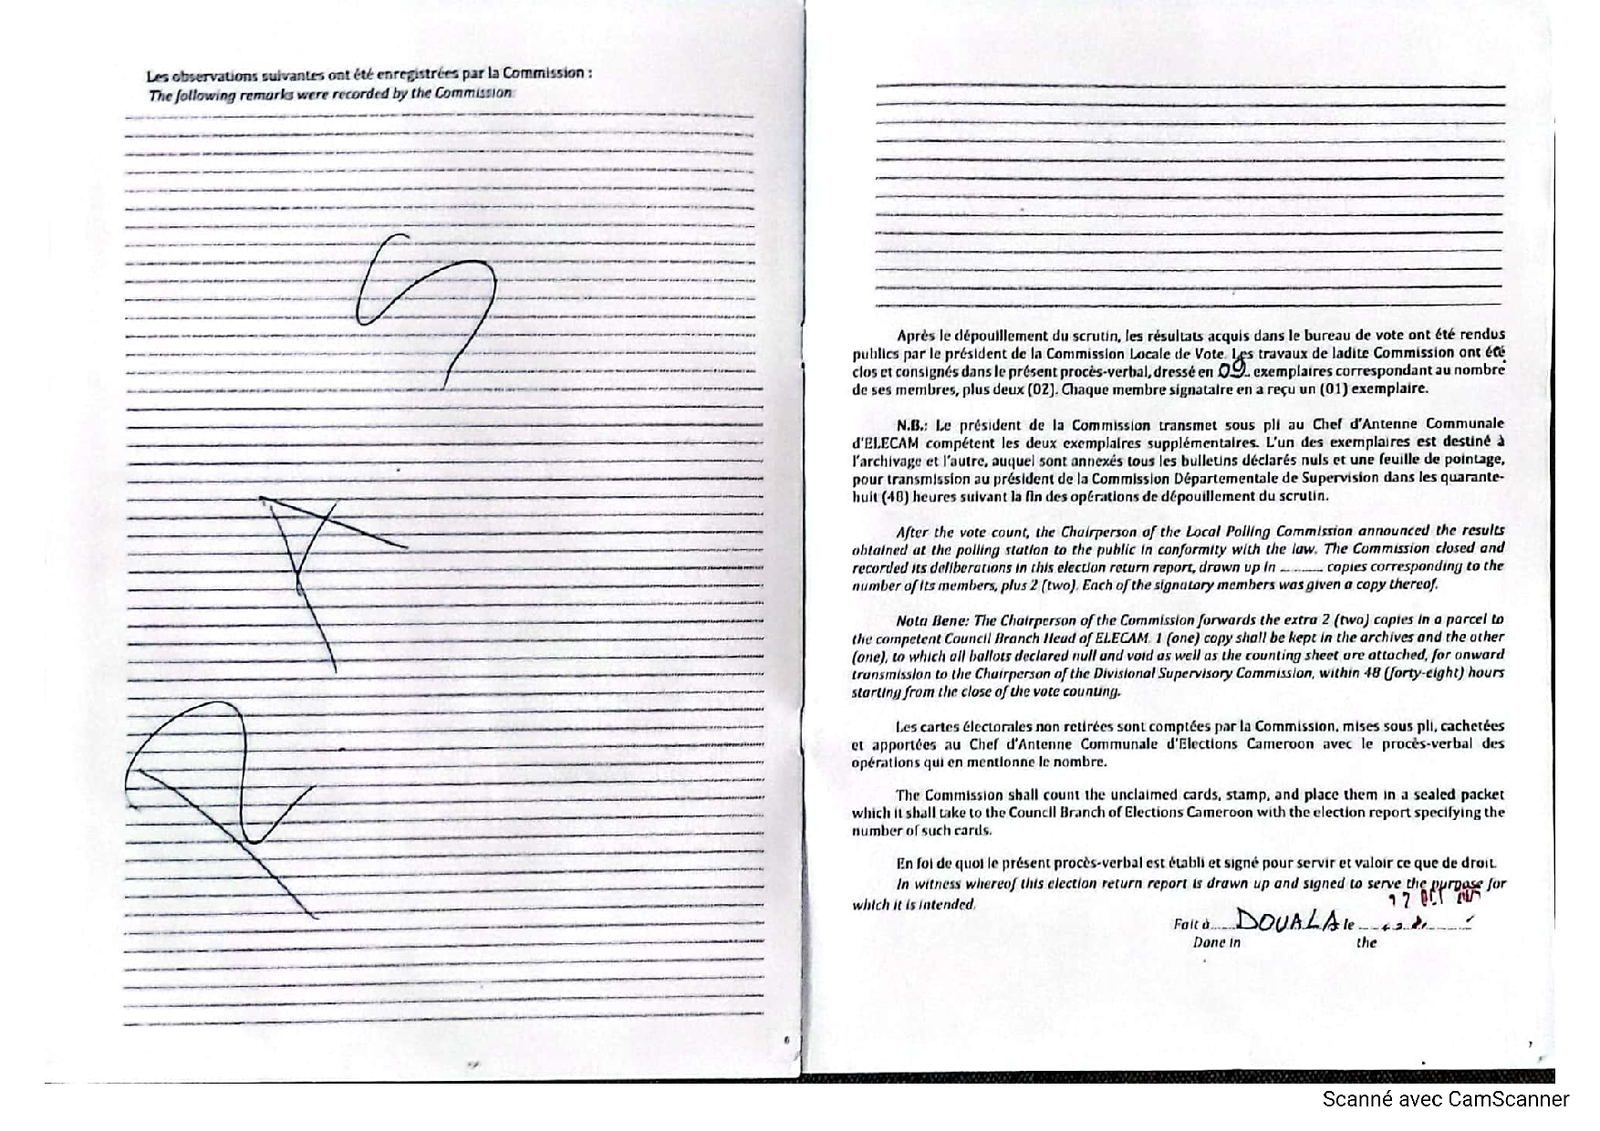 Les observations suivantes ont été enregistrées par la Commission :
The following remarks were recorded by the Commission
6
Après le dépouillement du scrutin, les résultats acquis dans le bureau de vote ont été rendus
publics par le président de la Commission Locale de Vote. Les travaux de ladite Commission ont été
clos et consignés dans le présent procès-verbal, dressé en 09 exemplaires correspondant au nombre
de ses membres, plus deux (02). Chaque membre signataire en a reçu un (01) exemplaire.
N.B.: Le président de la Commission transmet sous pli au Chef d'Antenne Communale
d'ELECAM compétent les deux exemplaires supplémentaires. L'un des exemplaires est destiné à
l'archivage et l'autre, auquel sont annexés tous les bulletins déclarés nuls et une feuille de pointage,
pour transmission au président de la Commission Départementale de Supervision dans les quarante-
huit (48) heures suivant la fin des opérations de dépouillement du scrutin.
After the vote count, the Chairperson of the Local Polling Commission announced the results
obtained at the polling station to the public in conformity with the law. The Commission closed and
recorded its deliberations in this election return report, drawn up in ......... copies corresponding to the
number of its members, plus 2 (two). Each of the signatory members was given a copy thereof.
Nota Bene: The Chairperson of the Commission forwards the extra 2 (two) copies in a parcel to
the competent Council Branch Head of ELECAM. 1 (one) copy shall be kept in the archives and the other
(one), to which all ballots declared null and void as well as the counting sheet are attached, for onward
transmission to the Chairperson of the Divisional Supervisory Commission, within 48 (forty-eight) hours
starting from the close of the vote counting.
Les cartes électorales non retirées sont comptées par la Commission, mises sous pli, cachetées
et apportées au Chef d'Antenne Communale d'Elections Cameroon avec le procès-verbal des
opérations qui en mentionne le nombre.
The Commission shall count the unclaimed cards, stamp, and place them in a sealed packet
which it shall take to the Council Branch of Elections Cameroon with the election report specifying the
number of such cards.
En foi de quoi le présent procès-verbal est établi et signé pour servir et valoir ce que de droit.
In witness whereof this election return report is drawn up and signed to serve the purpose for
which it is intended.
Fait à DOUALA le
Done in the
7
Scanné avec CamScanner